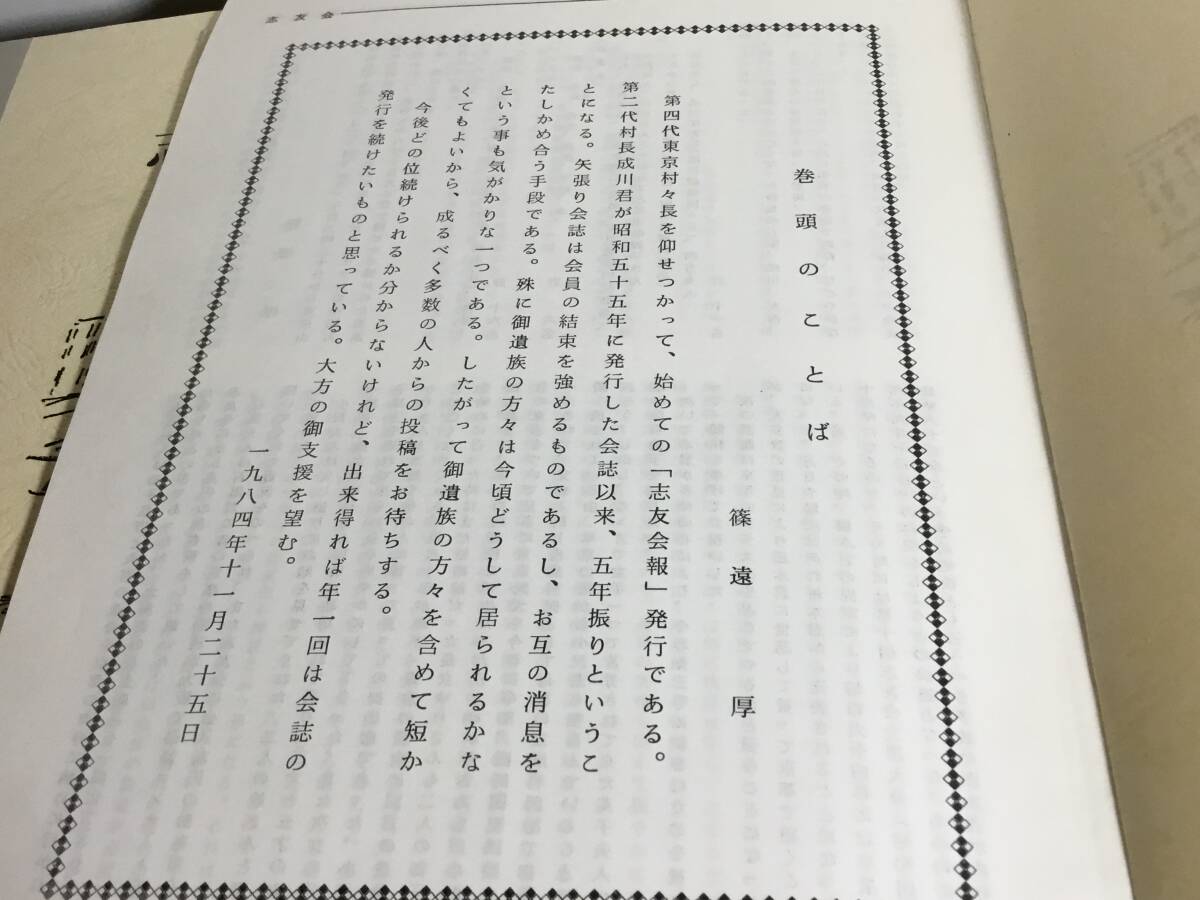 志友会
巻頭のことば
篠遠厚
第四代東京村々長を仰せつかって、始めての「志友会報」発行である。
第二代村長成川君が昭和五十五年に発行した会誌以来、五年振りというこ
とになる。矢張り会誌は会員の結束を強めるものであるし、お互の消息を
たしかめ合う手段である。殊に御遺族の方々は今頃どうして居られるかな
という事も気がかりな一つである。したがって御遺族の方々を含めて短か
くてもよいから、成るべく多数の人からの投稿をお待ちする。
今後どの位続けられるか分からないけれど、出来得れば年一回は会誌の
発行を続けたいものと思っている。大方の御支援を望む。
一九八四年十一月二十五日